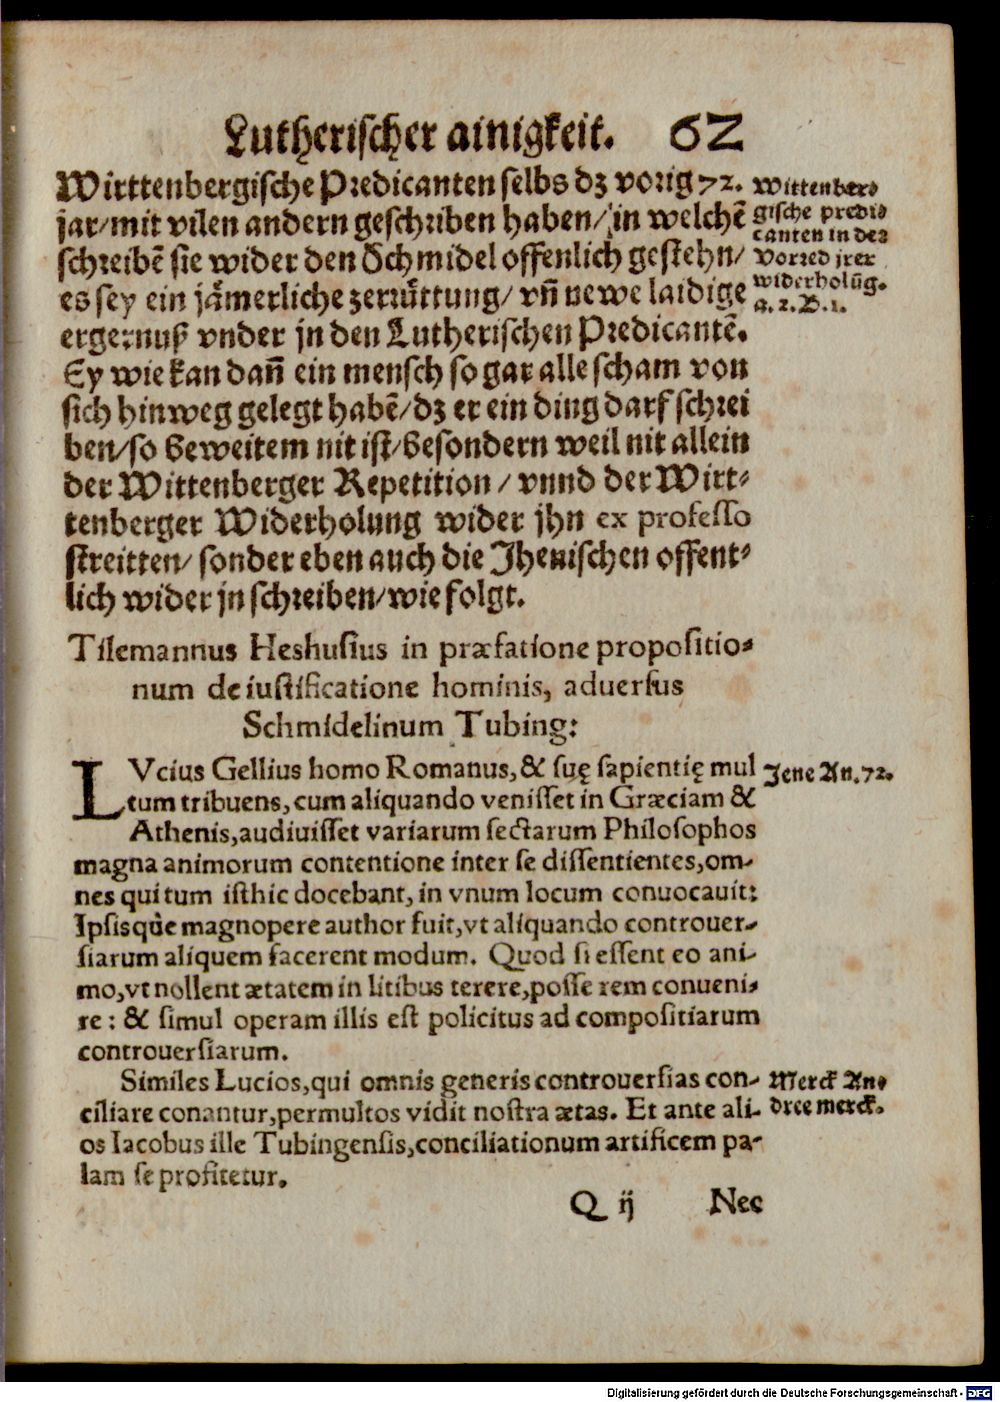 Lutherischer ainigkeit. 62
Wirttenbergische Predicanten selbs dz vorig 72.
jar/mit vilen andern geschriben haben/in welchẽ
schreibẽ sie wider den Schmidel offenlich gestehn/
es sey ein jämerliche zerrüttung/vñ newe laidige
ergernuß vnder jn den Lutherischen Predicantẽ.
Ey wie kan dañ ein mensch so gar alle scham von
sich hinweg gelegt habẽ/dz er ein ding darf schrei
ben/so beweitem nit ist/besondern weil nit allein
der Wittenberger Repetition/vnnd der Wirt⸗
tenberger Widerholung wider jhn ex professo
streitten/sonder eben auch die Jhenischen offent⸗
lich wider jn schreiben/wie folgt.
Wittenber⸗
gische predi⸗
canten in der
vorred jrer
widerholũg.
a. 2. B. 1.
Tilemannus Heshusius in præfatione propositio⸗
num de iustificatione hominis, aduersus
Schmidelinum Tubing:
LVcius Gellius homo Romanus, & suę sapientię mul
tum tribuens, cum aliquando venisset in Græciam &
Athenis, audiuisset variarum sectarum Philosophos
magna animorum contentione inter se dissentientes, om-
nes qui tum isthic docebant, in vnum locum conuocauit:
Ipsisq̀ue magnopere author fuit, vt aliquando controuer-
siarum aliquem facerent modum. Quod si essent eo ani-
mo, vt nollent ætatem in litibus terere, posse rem conueni⸗
re: & simul operam illis est policitus ad compositiarum
controuersiarum.
Jene An. 72.
Similes Lucios, qui omnis generis controuersias con-
ciliare conantur, permultos vidit nostra ætas. Et ante ali-
os Iacobus ille Tubingensis, conciliationum artificem pa-
lam se profitetur.
Merck An⸗
dree merck.
Q ij Nec
Digitalisierung gefördert durch die Deutsche Forschungsgemeinschaft - DFG